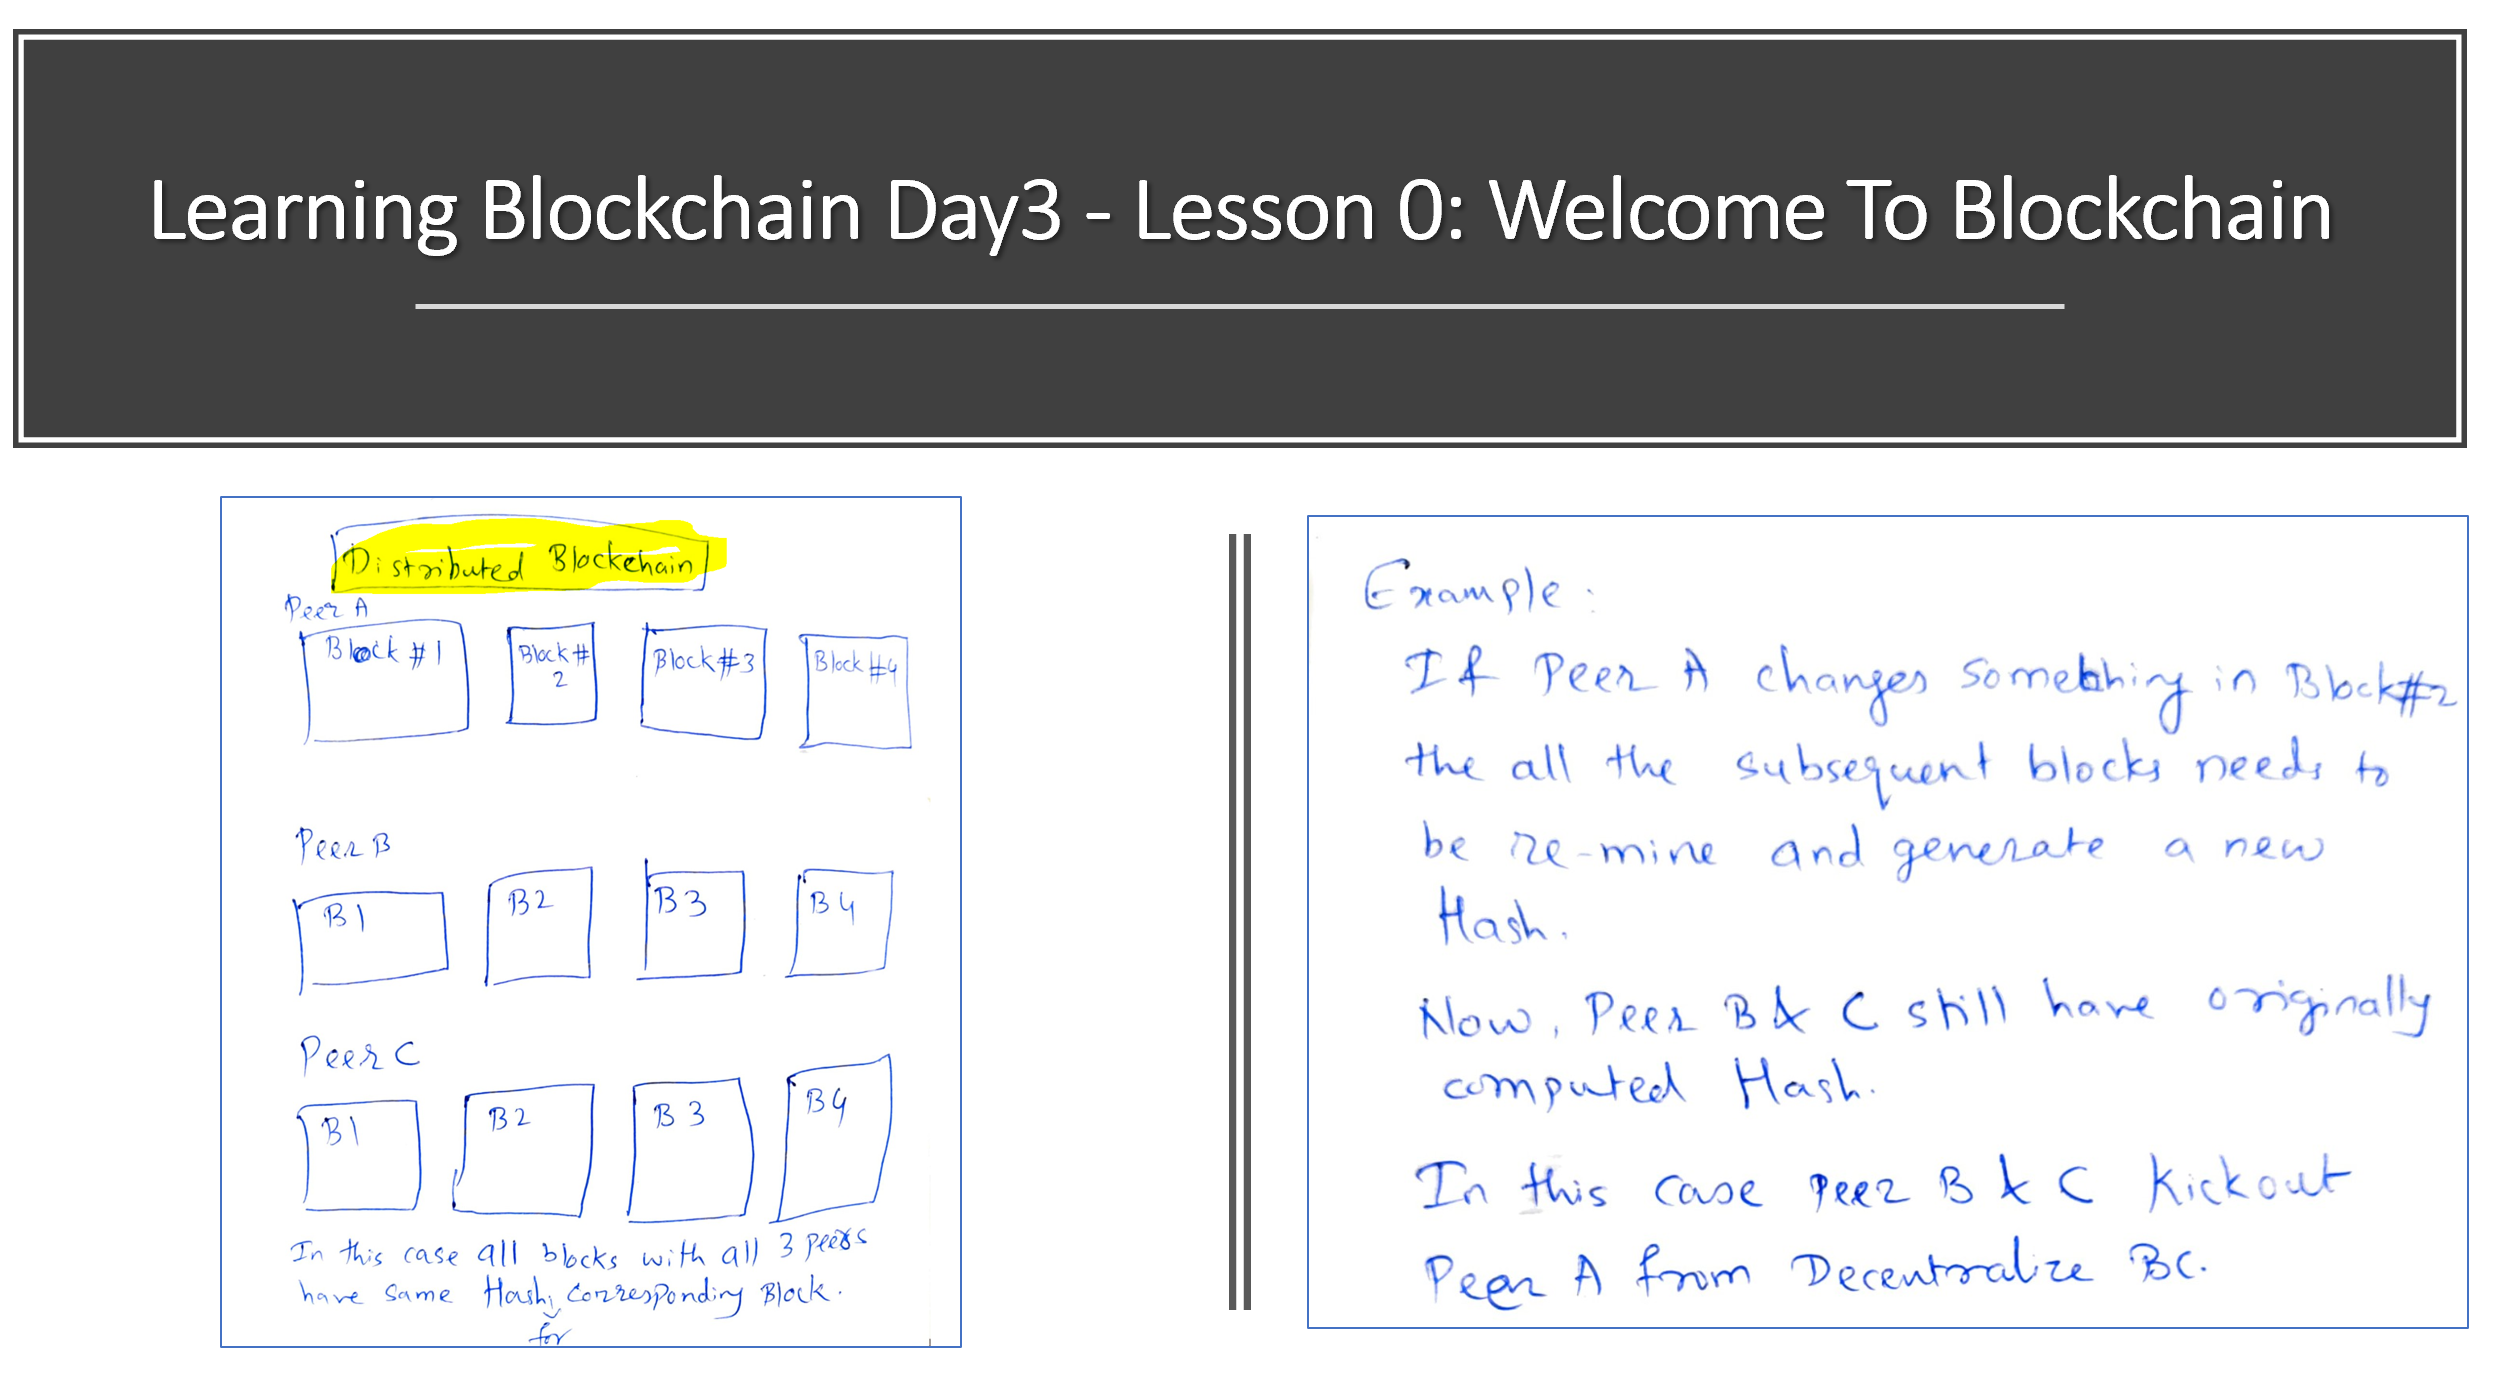 Learning Blockchain Day3 - Lesson 0: Welcome To Blockchain
Distributed Blockchain
Peer A
Block #1
Block #
2
Block #3
Block #4
Peer B
B1
B2
B3
B4
Peer C
B1
B2
B3
B4
In this case all blocks with all 3 peers
have same Hash, Corresponding Block.
for
Example:
If Peer A changes something in Block#2
the all the subsequent blocks needs to
be re-mine and generate a new
Hash.
Now, Peer B & C still have originally
computed Hash.
In this case Peer B & C Kickout
Peer A from Decentralize BC.